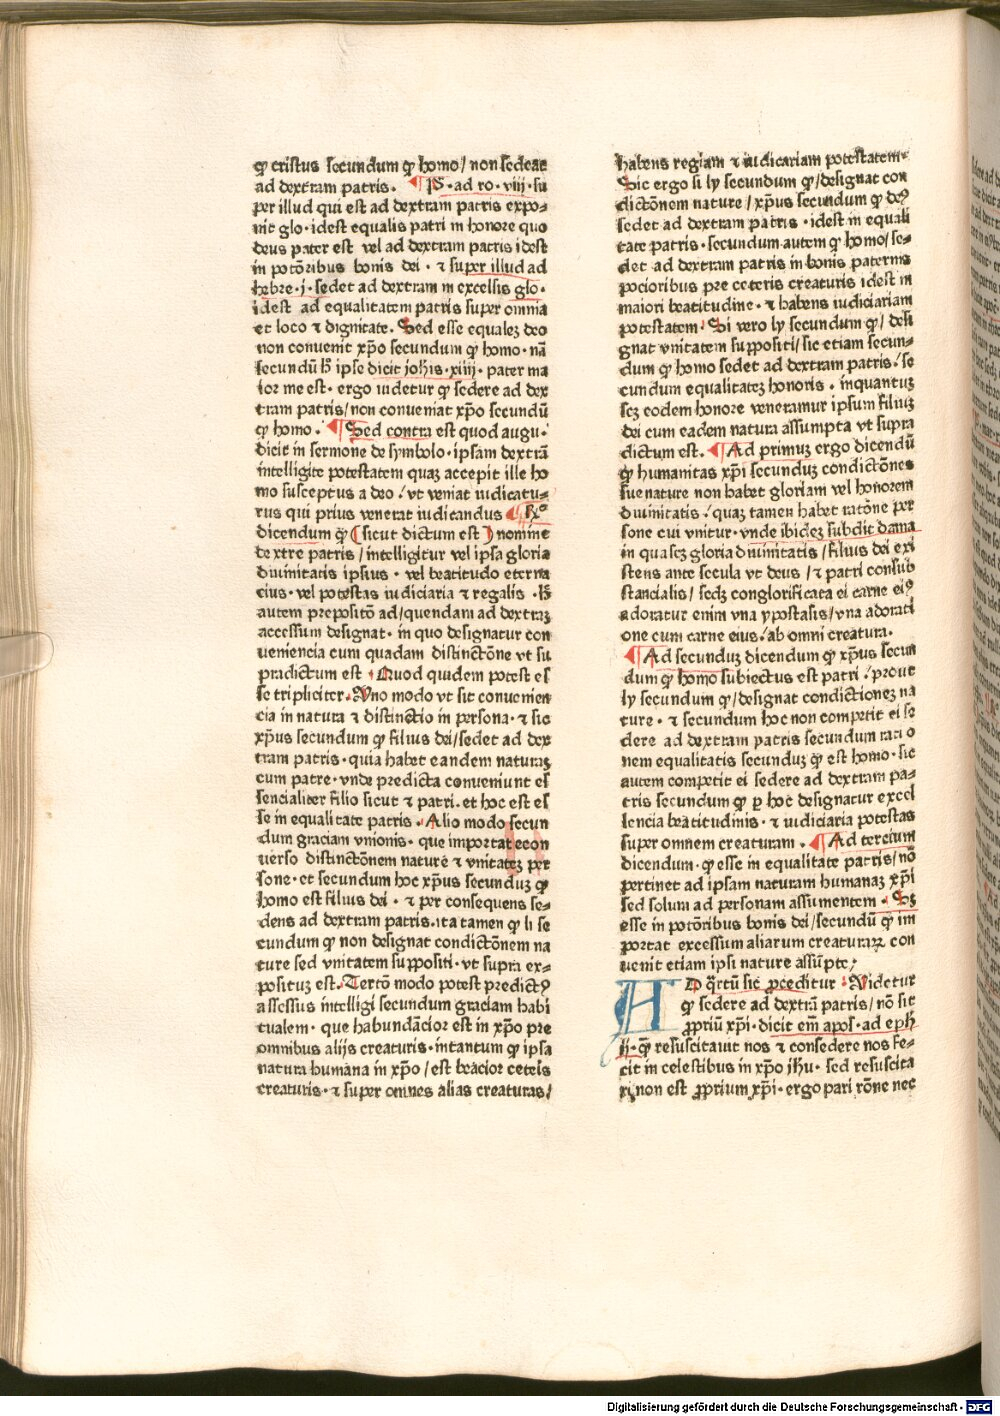 ꝙ cristus secundum ꝙ homo/ non sedeat
ad dextram patris. ¶ Pͣ. ad ro. viij. su
per illud qui est ad dextram patris expo-
nit glo. idest equalis patri in honore quo
deus pater est vel ad dextram patris idest
in potōribus bonis dei. ⁊ super illud ad
hebre. j. sedet ad dextram in excelsis glo.
idest ad equalitatem patris super omnia
et loco ⁊ dignitate. Sed esse equalez deo
non conuenit xp̄o secundum ꝙ homo. nā
secundū h̄ ipse dicit joh̄is. xiiij. pater ma
ior me est. ergo videtur ꝙ sedere ad dex
tram patris/ non conueniat xp̄o secundū
ꝙ homo. ¶ Sed contra est quod augu.
dicit in sermone de symbolo. ipsam dextrā
intelligite potestatem quaz accepit ille ho
mo susceptus a deo/ vt veniat iudicatu-
rus qui prius venerat iudicandus ¶ Rº
dicendum ꝙ̄ (sicut dictum est) nomine
dextre patris/ intelligitur vel ipsa gloria
diuinitatis ipsius. vel beatitudo eterna
eius. vel potestas iudiciaria ⁊ regalis. h̄
autem prepositō ad/ quendam ad dextraz
accessum designat. in quo designatur con
ueniencia cum quadam distinctōne vt su
pradictum est. Quod quidem potest es
se tripliciter. Vno modo vt sit conuenien
cia in natura ⁊ distinctio in persona. ⁊ sic
xp̄us secundum ꝙ filius dei/ sedet ad dex
tram patris. quia habet eandem naturaz
cum patre. vnde predicta conueniunt es
sencialiter filio sicut ⁊ patri. et hoc est es
se in equalitate patris. Alio modo secun
dum graciam vnionis. que importat econ
uerso distinctōnem nature ⁊ vnitatez per
sone. et secundum hoc xp̄us secunduz ꝙ
homo est filius dei. ⁊ per consequens se-
dens ad dextram patris. ita tamen ꝙ li se
cundum ꝙ non designat condictōnem na
ture sed vnitatem suppositi. vt supra ex-
posituz est. Tertō modo potest predictꝰ
assessus intelligi secundum graciam habi
tualem. que habundācior est in xp̄o pre
omnibus alijs creaturis. intantum ꝙ ipsa
natura humana in xp̄o/ est beacior ceteis
creaturis. ⁊ super omnes alias creaturas/
habens regiam ⁊ iudicariam potestatem.
Sic ergo si ly secundum ꝙ/ designat con
dictōnem nature/ xp̄us secundum ꝙ deꝰ
sedet ad dextram patris. idest in equali
tate patris. secundum autem ꝙ homo/ se-
det ad dextram patris in bonis paternis
pocioribus pre ceteris creaturis idest in
maiori beatitudine. ⁊ habens iudiciariam
potestatem. Si vero ly secundum ꝙ/ desi
gnat vnitatem suppositi/ sic etiam secun-
dum ꝙ homo sedet ad dextram patris. se
cundum equalitatez honoris. inquantuz
scz eodem honore veneramur ipsum filiuz
dei cum eadem natura assumpta vt supra
dictum est. ¶ Ad primuz ergo dicendū
ꝙ humanitas xp̄i secunduz condictōnes
sue nature non habet gloriam vel honorem
diuinitatis. quaz tamen habet ratōne per
sone cui vnitur. vnde ibidez subdit dama.
in qua scz gloria diuinitatis/ filius dei exi
stens ante secula vt deus/ ⁊ patri consub
stancialis/ sedz conglorificata ei carne eiꝰ
adoratur enim vna ypostasis/ vna adorati
one cum carne eius/ ab omni creatura.
¶ Ad secunduz dicendum ꝙ xp̄us secun
dum ꝙ homo subiectus est patri/ prout
ly secundum ꝙ/ designat condictionez na
ture. ⁊ secundum hoc non competit ei se
dere ad dextram patris secundum racio
nem equalitatis secunduz ꝙ est homo. sic
autem competit ei sedere ad dextram pa-
tris secundum ꝙ ꝑ hoc designatur excel
lencia beatitudinis. ⁊ iudiciaria potestas
super omnem creaturam. ¶ Ad tercium
dicendum. ꝙ esse in equalitate patris/ nō
pertinet ad ipsam naturam humanaz xp̄i
sed solum ad personam assumentem. Sz
esse in potōribus bonis dei/ secundū ꝙ im
portat excessum aliarum creaturaꝝ con
uenit etiam ipsi nature assūpte;
AD q̄rtū sic ꝓceditur. Videtur
ꝙ sedere ad dextrā patris/ nō sit
ꝓpriū xp̄i. dicit em̄ apos. ad eph
ij. ꝙ̄ resuscitauit nos ⁊ consedere nos fe-
cit in celestibus in xp̄o jh̄u. sed resuscita
ri non est ꝓprium xp̄i. ergo pari rōne nec
Digitalisierung gefördert durch die Deutsche Forschungsgemeinschaft - DFG